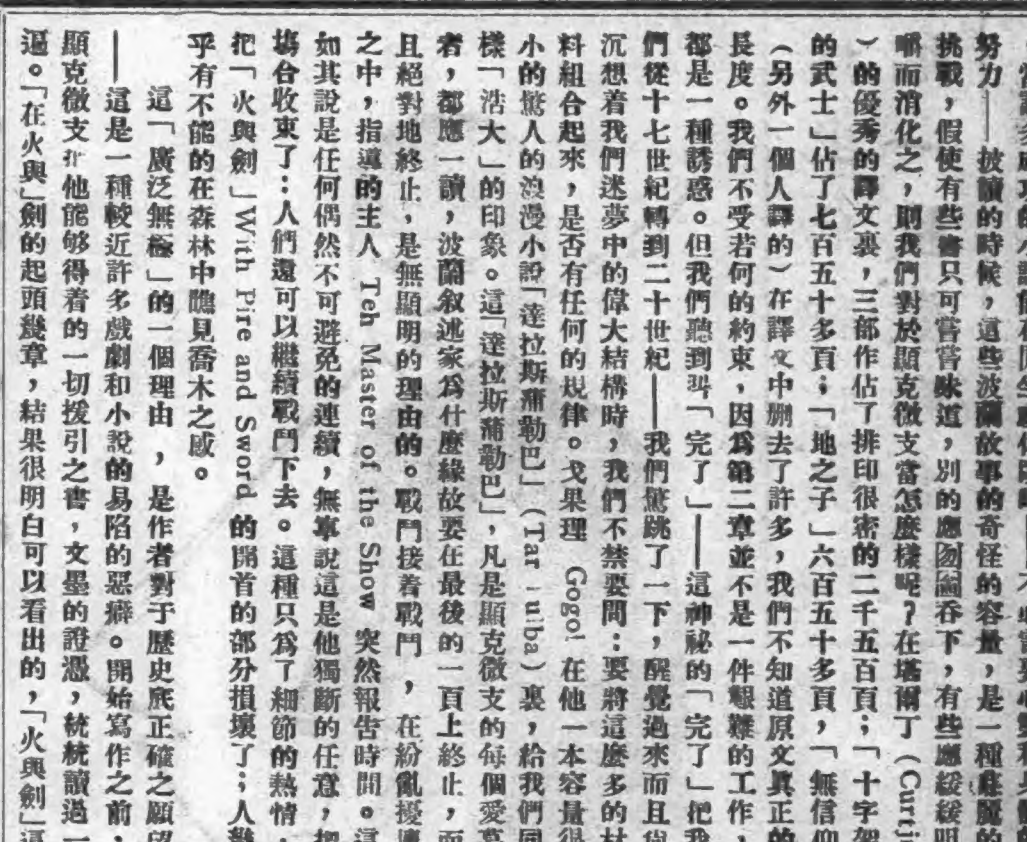 努力——披讀的時候，這些波蘭故事的奇怪的容量，是一種
挑戰，假使有些書只可嘗嘗味道，別的應囫圇吞下，有些應緩緩咀
嚼而消化之，則我們對於顯克微支當怎麼樣呢？在塔爾丁（Curti
）的優秀的譯文裏，三部作佔了排印很密的二千五百頁；「十字架
的武士」佔了七百五十多頁；「地之子」六百五十多頁，「無信仰
（另外一個人譯的）在譯文中刪去了許多，我們不知道原文眞正的
長度。我們不受若何的約束，因爲第二章並不是一件艱難的工作，
都是一種誘惑。但我們聽到叫「完了」——這神祕的「完了」把我
們從十七世紀轉到二十世紀——我們驚跳了一下，醒覺過來而且尙
沉想着我們迷夢中的偉大結構時，我們不禁要問：要將這麼多的材
料組合起來，是否有任何的規律。戈果理 Gogol 在他一本容量很
小的驚人的浪漫小說「達拉斯蒲勒巴」（Tar -ulba）裏，給我們同
樣「浩大」的印象。這「達拉斯蒲勒巴」，凡是顯克微支的每個愛慕
者，都應一讀，波蘭叙述家爲什麼緣故要在最後的一頁上終止，而
且絕對地終止，是無顯明的理由的。戰鬥接着戰鬥，在紛亂擾攘
之中，指導的主人 Teh Master of the Show 突然報告時間。這
如其說是任何偶然不可避免的連續，無寧說這是他獨斷的任意，把
塲台收束了：人們還可以繼續戰鬥下去。這種只爲了細節的熱情，
把「火與劍」With Fire and Sword 的開首的部分損壞了；人幾
乎有不能的在森林中瞧見喬木之感。
這「廣泛無極」的一個理由，是作者對于歷史底正確之願望
——這是一種較近許多戲劇和小說的易陷的惡癖。開始寫作之前，
顯克微支把他能够得着的一切援引之書，文墨的證憑，統統讀過一
遍。「在火與」劍的起頭幾章，結果很明白可以看出的，「火與劍」這